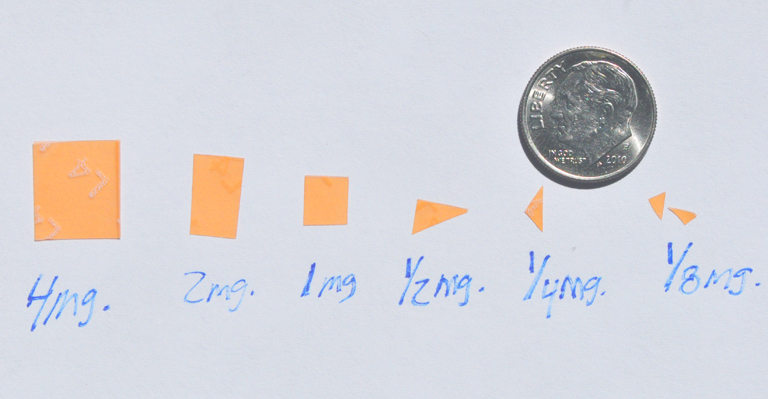 LIBERTY
IN GOD
WE TRUST
2010
P
4mg.
2mg.
1mg
1/2mg.
1/4mg.
1/8mg.